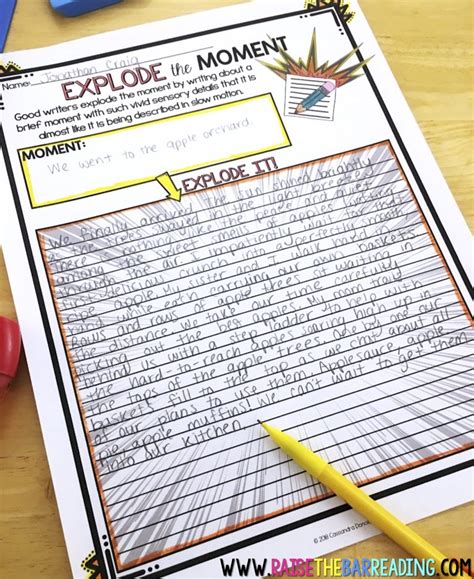 Name: Jonathan Craig
EXPLODE the MOMENT
Good writers explode the moment by writing about a
brief moment with such vivid sensory details that it is
almost like it is being described in slow motion.
MOMENT:
We went to the apple orchard.
EXPLODE IT!
We finally arrived! The sun shined brightly
The trees swayed in the light breeze.
There nothing like the peace and quiet
among the sweet smells apples wafting
through the air. I impatiently wait for that
first delicious crunch into a perfectly smooth
ripe apple. My sister and I walk hand in
hand while each carrying our own baskets.
Rows and rows of apple trees sit waiting in
the distance. We take our time carefully
picking out the best apples. My mom
behind us with a step ladder to help with
the hard-to-reach apples soaring high up in
the tops of the apple trees. One by one our
baskets fill to the top as we chat about all
of our plans to use them. Applesauce, apple
pie, apple muffins! We can't wait to get them
into our kitchen.
© 2018 Cassandra
WWW.RAISETHEBARREADING.COM